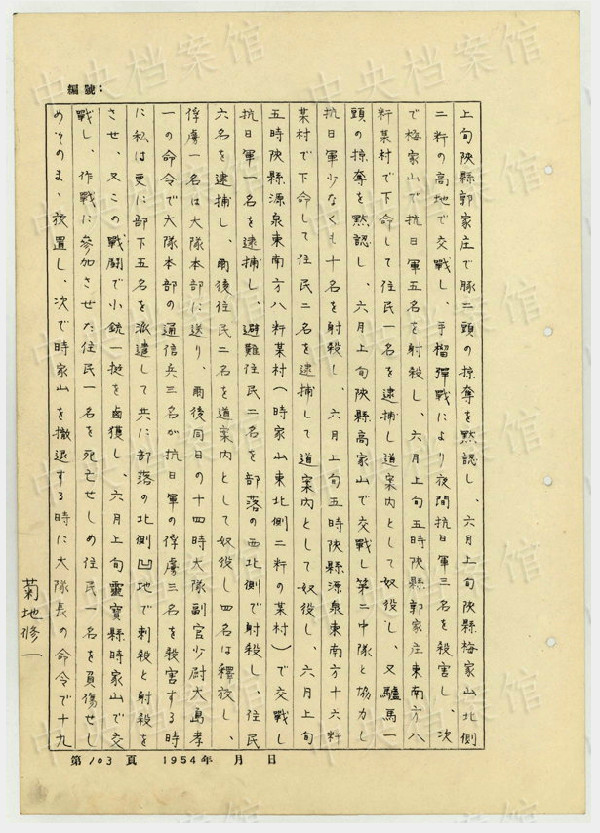 編號:
上旬陝縣郭家庄で豚二頭の掠奪を黙認し、六月上旬陝縣梅家山北側
二粁の高地で交戰し、手榴彈戰により夜間抗日軍三名を殺害し、次
で梅家山で抗日軍五名を射殺し、六月上旬五時陝縣郭家庄東南方八
粁某村で下命して住民一名を逮捕し道案内として奴役し、又驢馬一
頭の掠奪を黙認し、六月上旬陝縣高家山で交戰し第二中隊と協力し
抗日軍少なくも十名を射殺し、六月上旬五時陝縣源泉東南方十六粁
某村で下命して住民二名を逮捕して道案内として奴役し、六月上旬
五時陝縣源泉東南方八粁某村(時家山東北側二粁の某村)で交戰し
抗日軍一名を逮捕し、避難住民二名を部落の西北側で射殺し、住民
六名を逮捕し、爾後住民二名を道案内として奴役し四名は釋放し、
俘虜一名は大隊本部に送り、爾後同日の十四時大隊副官少尉大島孝
一の命令で大隊本部の通信兵三名が抗日軍の俘虜三名を殺害する時
に私は更に部下五名を派遣して共に部落の北側凹地で刺殺と射殺を
させ、又この戰闘で小銃一挺を鹵獲し、六月上旬靈寶縣時家山で交
戰し、作戰に參加させた住民一名を死亡せしめ住民一名を負傷せし
めそのまゝ放置し、次で時家山を撤退する時に大隊長の命令で十九
菊地修一
第103頁 1954年 月 日
中央档案馆